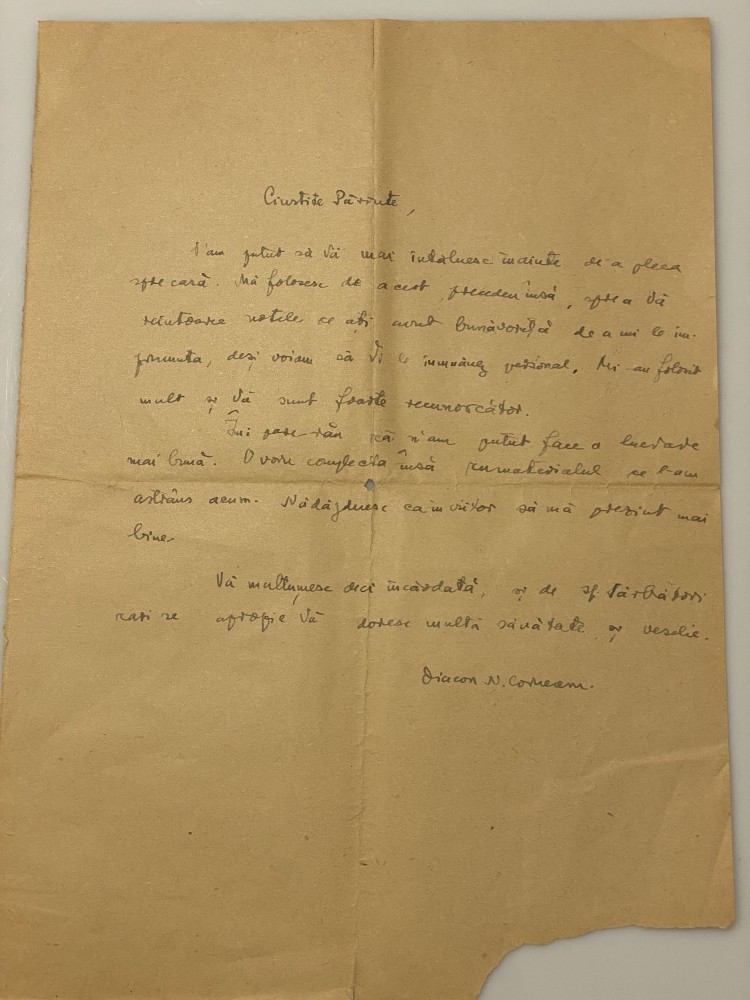 Cinstite Părinte,
N'am putut să Vă mai întâlnesc înainte de a pleca
spre casă. Mă folosesc de acest procedeu însă, spre a Vă
reîntoarce notele ce ați avut bunăvoința de a mi le îm-
prumuta, deși voiam să Vi le înmânez personal. Mi-au folosit
mult și Vă sunt foarte recunoscător.
Îmi pare rău că n'am putut face o lucrare
mai bună. O voiu complecta însă cu materialul ce l-am
astrâns acum. Nădăjduesc ca în viitor să mă prezint mai
bine.
Vă mulțumesc deci încăodată, și de sf. Sărbători
cari se apropie Vă doresc multă sănătate și veselie.
Diacon N. Corneanu.